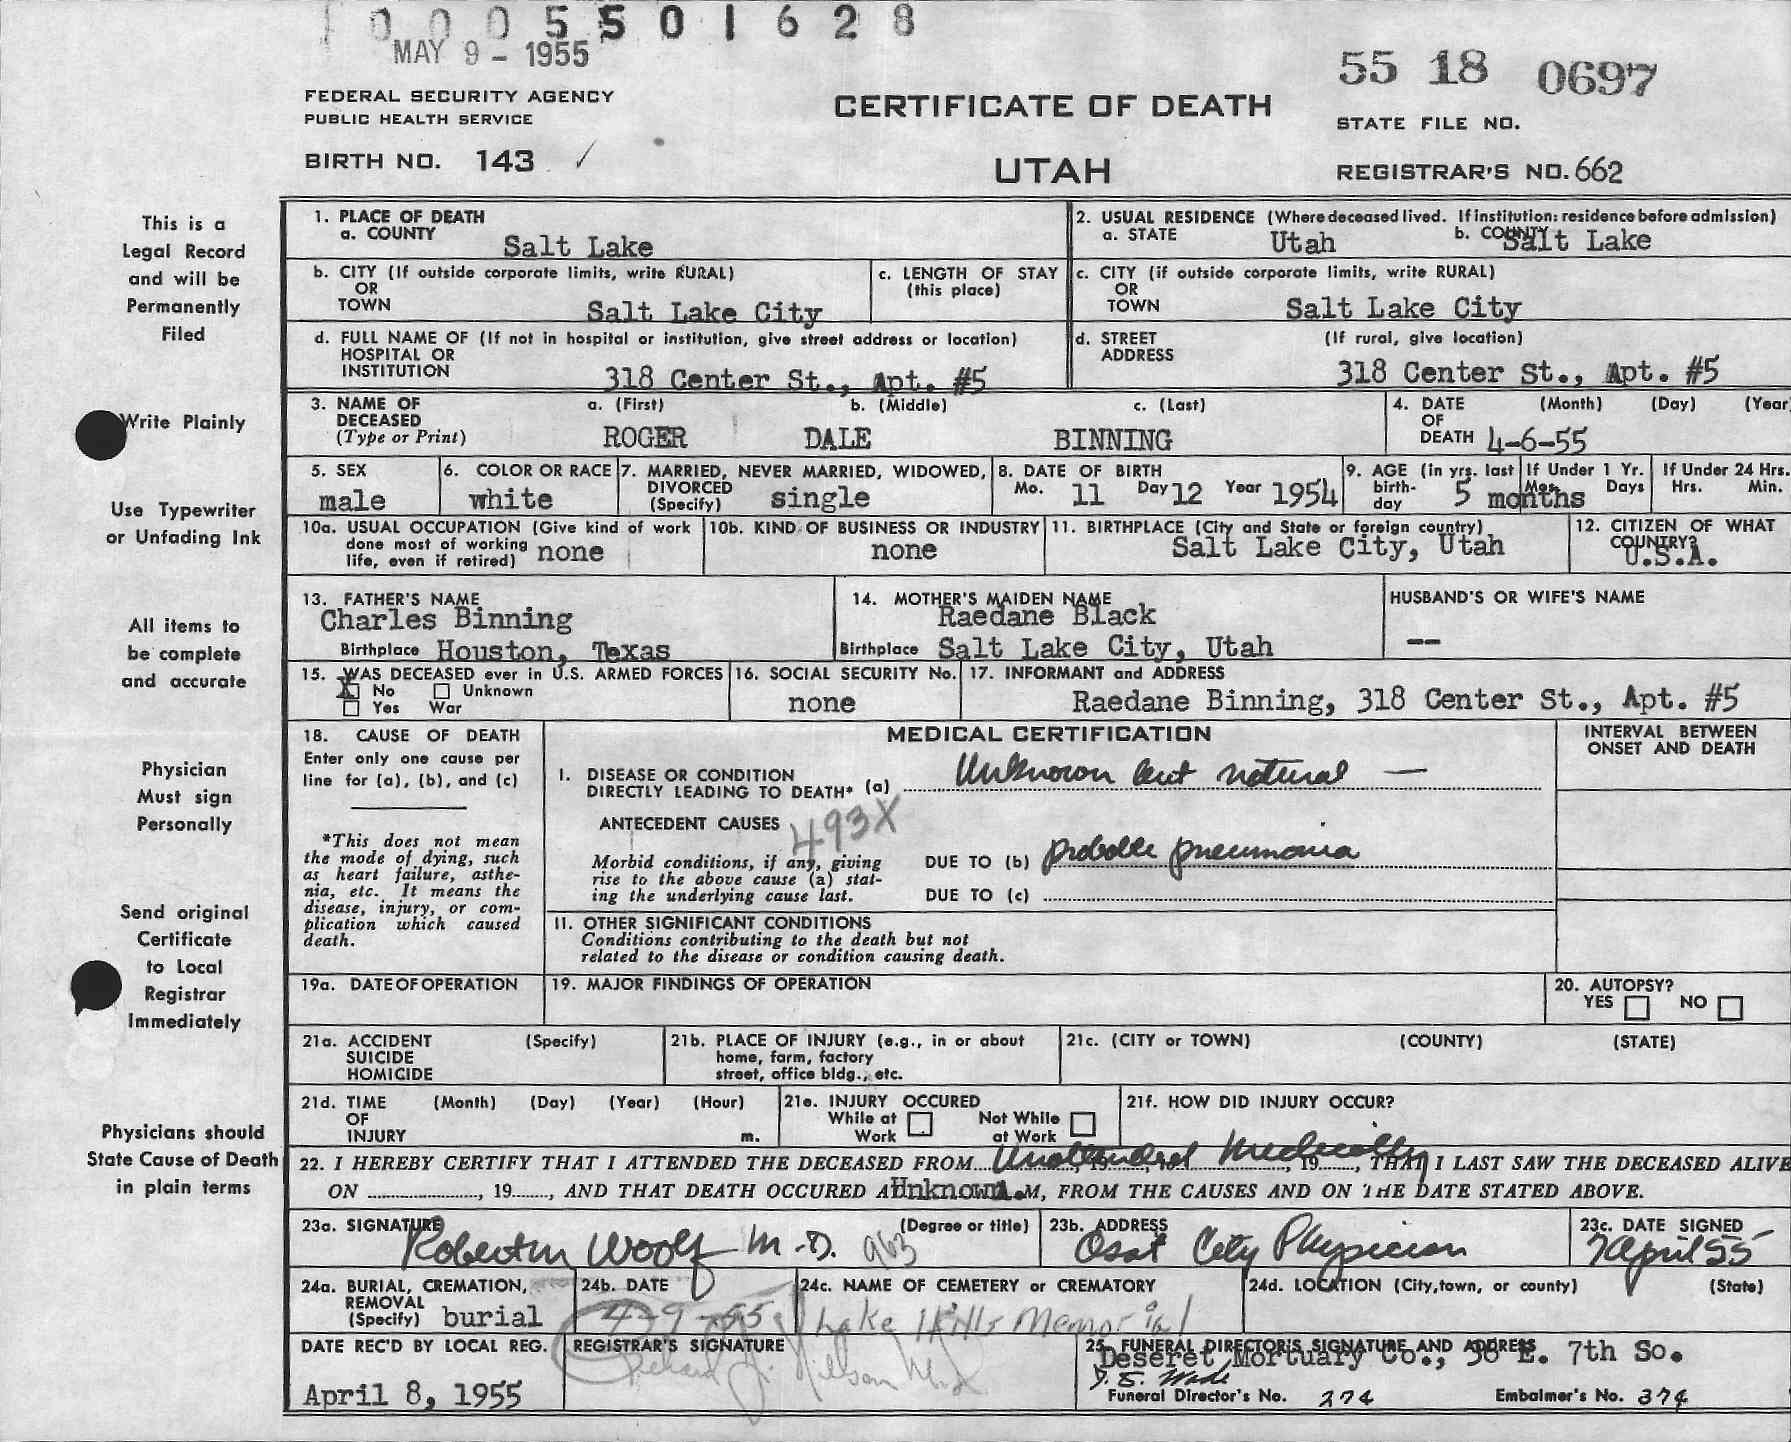 0005501628
MAY 9 - 1955
55 18 0697
FEDERAL SECURITY AGENCY
PUBLIC HEALTH SERVICE
CERTIFICATE OF DEATH
STATE FILE NO.
BIRTH NO. 143
UTAH
REGISTRAR'S NO. 662
This is a
Legal Record
and will be
Permanently
Filed
Write Plainly
Use Typewriter
or Unfading Ink
All items to
be complete
and accurate
Physician
Must sign
Personally
Send original
Certificate
to Local
Registrar
Immediately
Physicians should
State Cause of Death
in plain terms
1. PLACE OF DEATH
a. COUNTY Salt Lake
2. USUAL RESIDENCE (Where deceased lived. If institution: residence before admission)
a. STATE Utah b. COUNTY Salt Lake
b. CITY (If outside corporate limits, write RURAL)
OR
TOWN Salt Lake City
c. LENGTH OF STAY
(this place)
c. CITY (if outside corporate limits, write RURAL)
OR
TOWN Salt Lake City
d. FULL NAME OF (If not in hospital or institution, give street address or location)
HOSPITAL OR
INSTITUTION 318 Center St., Apt. #5
d. STREET (If rural, give location)
ADDRESS 318 Center St., Apt. #5
3. NAME OF a. (First) b. (Middle) c. (Last)
DECEASED
(Type or Print) ROGER DALE BINNING
4. DATE (Month) (Day) (Year
OF
DEATH 4-6-55
5. SEX
male
6. COLOR OR RACE
white
7. MARRIED, NEVER MARRIED, WIDOWED,
DIVORCED
(Specify) single
8. DATE OF BIRTH
Mo. 11 Day 12 Year 1954
9. AGE (in yrs. last
birth-
day 5 months
If Under 1 Yr.
Mos. Days
If Under 24 Hrs.
Hrs. Min.
10a. USUAL OCCUPATION (Give kind of work
done most of working
life, even if retired) none
10b. KIND OF BUSINESS OR INDUSTRY
none
11. BIRTHPLACE (City and State or foreign country)
Salt Lake City, Utah
12. CITIZEN OF WHAT
COUNTRY?
U.S.A.
13. FATHER'S NAME
Charles Binning
Birthplace Houston, Texas
14. MOTHER'S MAIDEN NAME
Raedane Black
Birthplace Salt Lake City, Utah
HUSBAND'S OR WIFE'S NAME
--
15. WAS DECEASED ever in U.S. ARMED FORCES
X No Unknown
Yes War
16. SOCIAL SECURITY No.
none
17. INFORMANT and ADDRESS
Raedane Binning, 318 Center St., Apt. #5
18. CAUSE OF DEATH
Enter only one cause per
line for (a), (b), and (c)
*This does not mean
the mode of dying, such
as heart failure, asthe-
nia, etc. It means the
disease, injury, or com-
plication which caused
death.
MEDICAL CERTIFICATION
INTERVAL BETWEEN
ONSET AND DEATH
I. DISEASE OR CONDITION
DIRECTLY LEADING TO DEATH* (a) Unknown but natural —
ANTECEDENT CAUSES 493X
Morbid conditions, if any, giving
rise to the above cause (a) stat-
ing the underlying cause last.
DUE TO (b) probable pneumonia
DUE TO (c)
II. OTHER SIGNIFICANT CONDITIONS
Conditions contributing to the death but not
related to the disease or condition causing death.
19a. DATE OF OPERATION
19. MAJOR FINDINGS OF OPERATION
20. AUTOPSY?
YES NO
21a. ACCIDENT (Specify)
SUICIDE
HOMICIDE
21b. PLACE OF INJURY (e.g., in or about
home, farm, factory
street, office bldg., etc.
21c. (CITY or TOWN) (COUNTY) (STATE)
21d. TIME (Month) (Day) (Year) (Hour)
OF
INJURY m.
21e. INJURY OCCURED
While at Work
Not While at Work
21f. HOW DID INJURY OCCUR?
22. I HEREBY CERTIFY THAT I ATTENDED THE DECEASED FROM Unattended Medically, 19, THAT I LAST SAW THE DECEASED ALIVE
ON , 19 , AND THAT DEATH OCCURED AT Unknown M, FROM THE CAUSES AND ON THE DATE STATED ABOVE.
23a. SIGNATURE (Degree or title)
Woolf M.D.
23b. ADDRESS
City Physician
23c. DATE SIGNED
7 April 55
24a. BURIAL, CREMATION,
REMOVAL
(Specify) burial
24b. DATE
4-9-55
24c. NAME OF CEMETERY or CREMATORY
Lake Hills Memorial
24d. LOCATION (City, town, or county) (State)
DATE REC'D BY LOCAL REG.
April 8, 1955
REGISTRAR'S SIGNATURE
25. FUNERAL DIRECTOR'S SIGNATURE AND ADDRESS
Deseret Mortuary Co., 36 E. 7th So.
Wade
Funeral Director's No. 274 Embalmer's No. 374